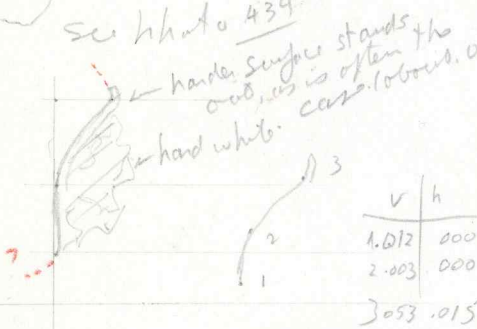 See photo 434
harder surface stands
out, as is often the
case. (about.
hard white.
3
2
1
v h
1.012 000
2.003 000
3 053 .015